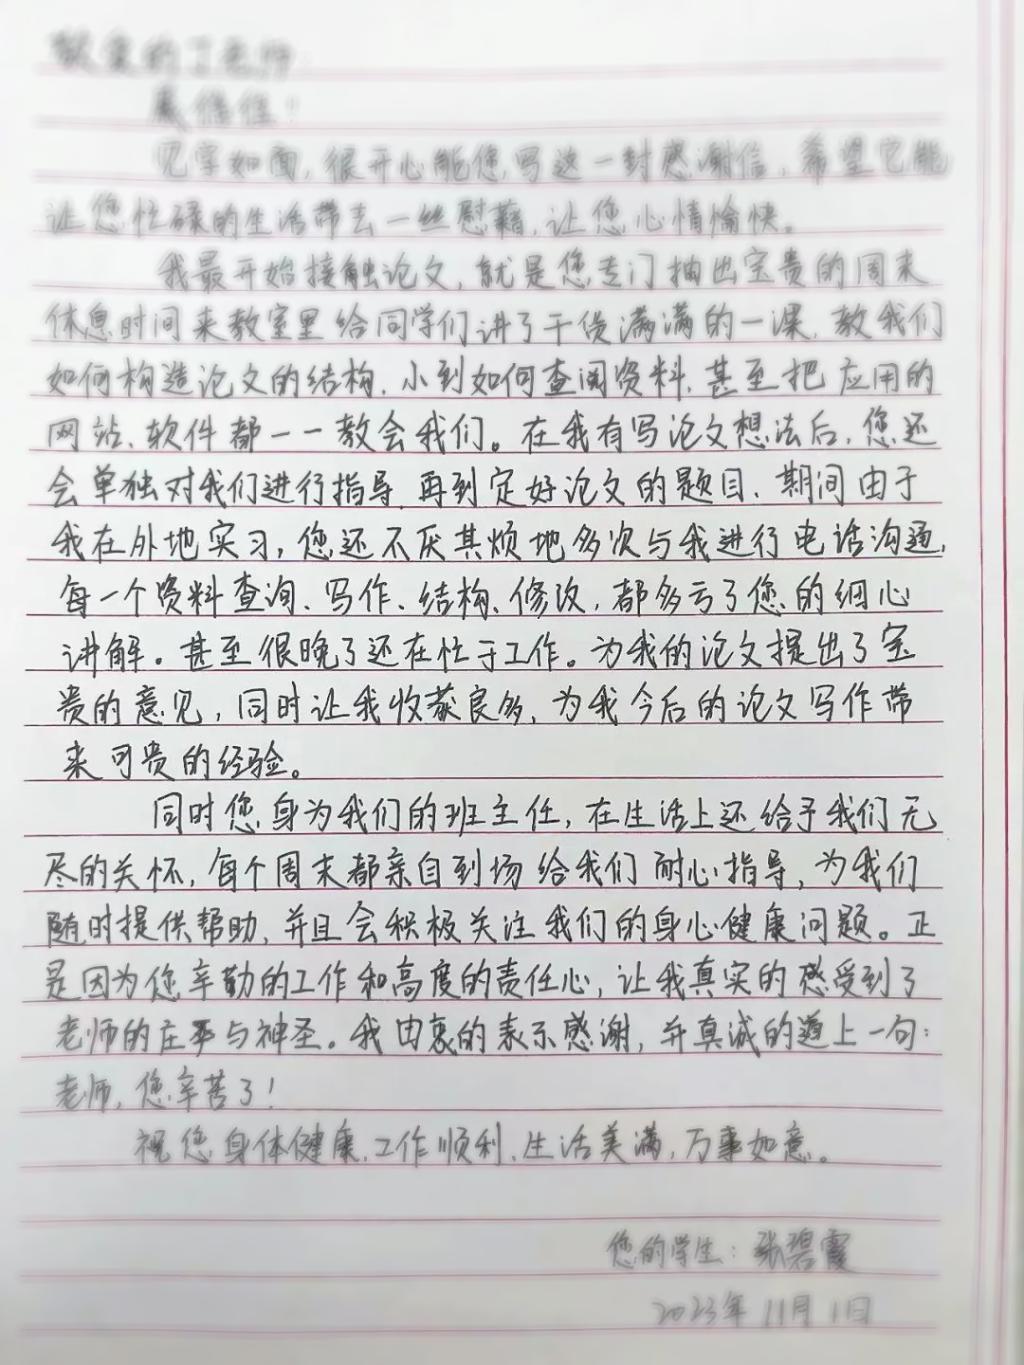 敬爱的丁老师
展信佳！
见字如面，很开心能您写这一封感谢信，希望它能
让您忙碌的生活带去一丝慰藉，让您心情愉快。
我最开始接触论文，就是您专门抽出宝贵的周末
休息时间来教室里给同学们讲了干货满满的一课，教我们
如何构造论文的结构，小到如何查阅资料，甚至把应用的
网站、软件都一一教会我们。在我有写论文想法后，您还
会单独对我们进行指导，再到定好论文的题目、期间由于
我在外地实习，您还不厌其烦地多次与我进行电话沟通，
每一个资料查询、写作、结构、修改，都多亏了您的细心
讲解。甚至很晚了还在忙于工作。为我的论文提出了宝
贵的意见，同时让我收获良多，为我今后的论文写作带
来可贵的经验。
同时您身为我们的班主任，在生活上还给予我们无
尽的关怀，每个周末都亲自到场给我们耐心指导，为我们
随时提供帮助，并且会积极关注我们的身心健康问题。正
是因为您辛勤的工作和高度的责任心，让我真实的感受到了
老师的庄严与神圣。我由衷的表示感谢，并真诚的道上一句：
老师，您辛苦了！
祝您身体健康，工作顺利，生活美满，万事如意。
您的学生：张碧霞
2023年11月1日